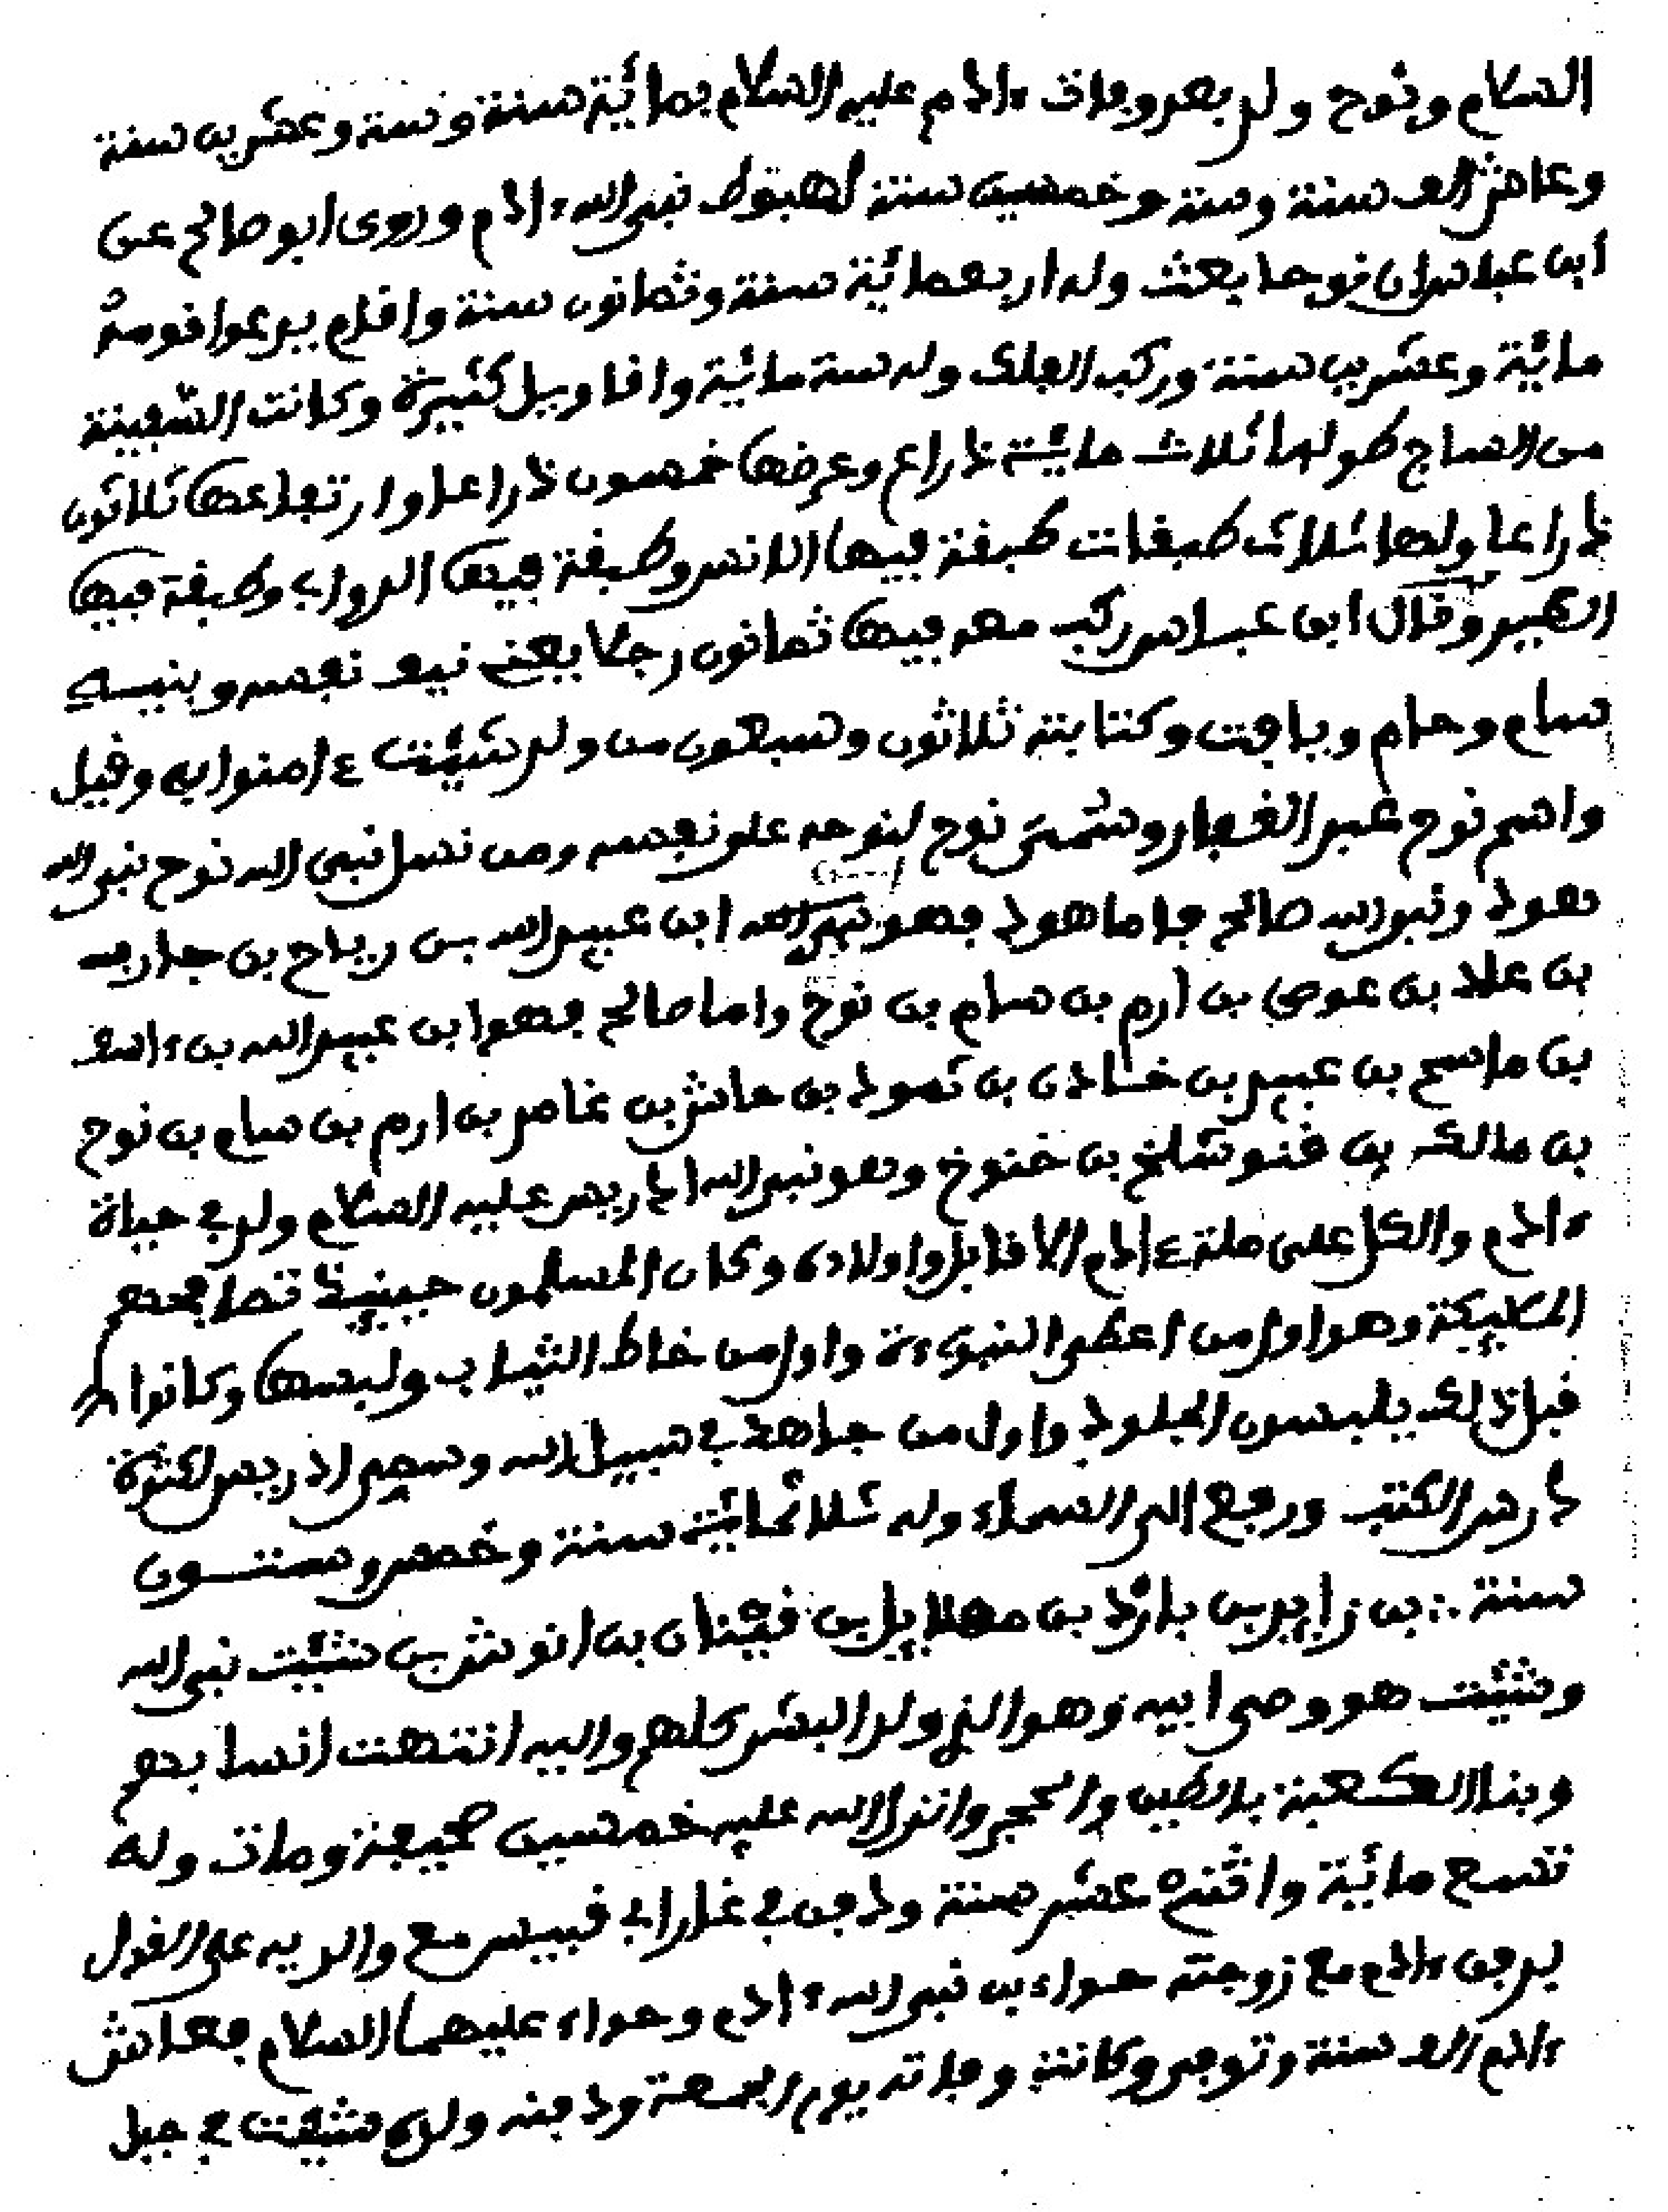 السلام ونوح ولد بعد وفات ءادم عليه السلام بمائية سنة وستة وعشرين سنة
وعاش الف سنة وستة وخمسين سنة لهبوط نبي الله ءادم وروى ابو صالح عن
ابن عباس ان نوحا بعث وله اربعمائية سنة وثمانون سنة واقام يدعوا قومه
مائية وعشرين سنة وركب الفلك وله ستة مائية واقاويل كثيرة وكانت السفينة
من الساج طولها ثلاث مائية ذراع وعرضها خمسون ذراعا وارتفاعها ثلاثون
ذراعا ولها ثلاث طبقات طبقة فيها الانس وطبقة فيها الدواب وطبقة فيها
الطير وقال ابن عباس ركب معه فيها ثمانون رجلا يعني نيف نفسه وبنيه
سام وحام ويافت وكنتا بنته ثلاثون وسبعون من ولد شيت ءامنوا به وقيل
واسم نوح عبد الغفار وسمي نوح لنوحه على نفسه ومن نسل نبي الله نوح نبي الله
هود ونبي الله صالح فاما هود فهو نبي الله ابن عبد الله بن رباح بن جاربه
بن علاد بن عوص بن ارم بن سام بن نوح واما صالح فهوا بن عبيد الله بن ءاسف
بن ماسح بن عبيد بن خاذن بن ثمود بن عاش بن غامر بن ارم بن سام بن نوح
بن مالك بن فتوشلخ بن خنوخ وهو نبي الله ادريس عليه السلام ولد في حياة
ءادم والكل على ملة ءادم الا قابل واولاده وكان المسلمون حينيذ تصافحهم
الملييكة وهو اول من اعطي النبوءة واول من خاط الثياب ولبسها وكانوا
قبل ذلك يلبسون الجلود واول من جاهد في سبيل الله وسمي ادريس لكثرة
درس الكتب ورفع الى السماء وله ثلاثمائية سنة وخمس وستون
سنة بن زايد بن يارد بن مهلاييل بن قينان بن انوش بن شيت نبي الله
وشيت هو وصي ابيه وهو الذي ولد البشر كلهم واليه انتهت انسابهم
وبنا الكعبة بالطين والحجر وانزل الله عليه خمسين صحيفة ومات وله
تسع مائية واثني عشر سنة ودفن في غار ابي قبيس مع والديه على القول
بدفن ءادم مع زوجته حواء بن نبي الله ءادم وحواء عليهما السلام فعاش
ءادم الف سنة وتوفي وكانت وفاته يوم الجمعة ودفنه ولده شيت في جبل